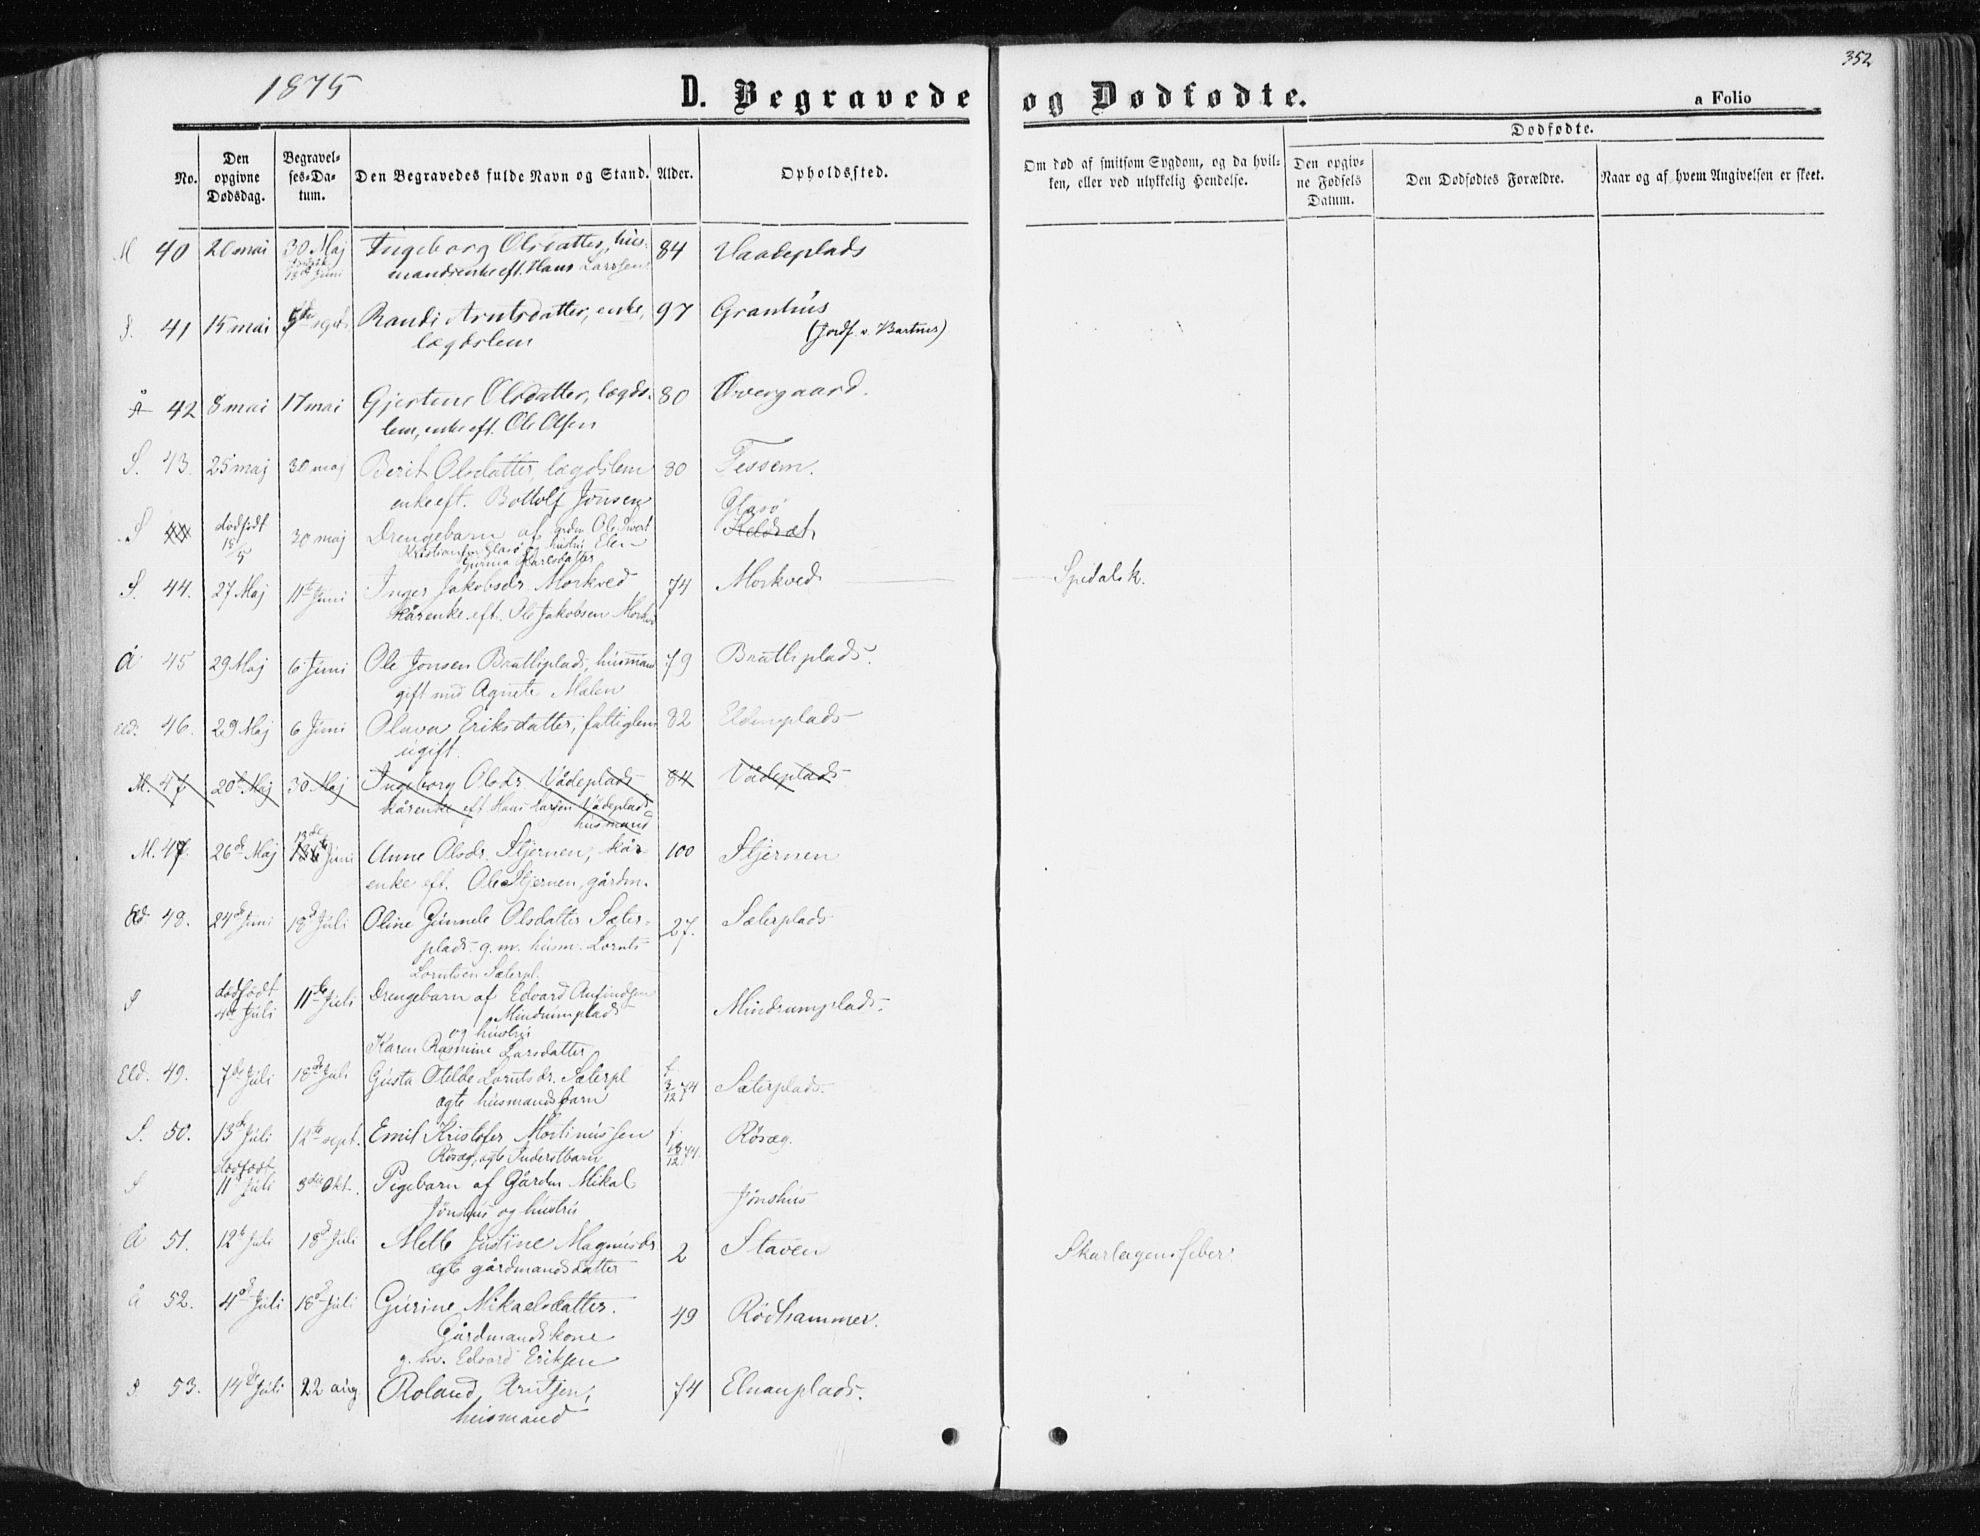 352
1875
D. Begravede og Dødfødte.
a Folio
No.
Den opgivne Dødsdag.
Begravelses-Datum.
Den Begravedes fulde Navn og Stand.
Alder.
Opholdssted.
Om død af smitsom Sygdom, og da hvilken, eller ved ulykkelig Hendelse.
Dødfødte.
Den opgivne Fødsels Datum.
Den Dødfødtes Forældre.
Naar og af hvem Angivelsen er skeet.
M 40 20 mai 30 Maj Ingeborg Olsdatter, hus- 84 Vaadeplads
Juni mandsenke eft. Hans Larssen
S. 41 15 mai Randi Arntsdatter, enke, 97 Granhus
lægdslem (Jordf. v. Bartnes)
Å 42 8 mai 17 mai Gjertine Olsdatter, lægds- 80 Overgaard.
lem, enke eft. Ole Olsen
S. 43. 25 maj 30 maj Berit Olsdatter, lægdslem 80 Fessem.
enke eft. Bottolf Jonsen
S 44 dødfødt 18/5 30 maj Drengebarn af grdm Ole Sivert Glasø
Kristiansen Glasø og hustru Elen
Gurina Karlsdatter
S. 44. 27 Maj 11te Juni Inger Jakobsdr Morkved 74 Morkved Spedalsk.
kårenke eft. Ole Jakobsen Morkved
Å 45 29 Maj 6 Juni Ole Jonsen Brattiplads, husmand 79 Brattiplads.
gift med Agnete Mælen
Eld. 46. 29 Maj 6 Juni Olava Eriksdatter, fattiglem 82 Eldenplads
ugift.
M. 47 20de Maj 30 Maj Ingeborg Olsdr Vådeplads 84 Vådeplads
kårenke eft Hans Larsen Vådeplads
husmand
M. 47. 26de Maj 13de Juni Anne Olsdr. Stjernen, kår- 100 Stjernen
enke eft. Ole Stjernen, gårdm.
Eld 48. 24de Juni 18de Juli Oline Gunnele Olsdatter Sæter- 27. Sæterplads
plads g. m. husm. Lornts
Lorntsen Sæterpl.
S dødfødt 4de Juli 11te Juli Drengebarn af Edvard Anfindsen Mindrumplads
Mindrumplads
og hustru
Karen Rasmine Larsdatter
Eld. 49. 7de Juli 18de Juli Gusta Otelde Lorntsdr. Sæterpl f. 3/12 74 Sæterplads.
ægte husmandsbarn
S. 50. 13de Juli 12te sept. Emil Kristofer Mortinussen f. 18/12 74. Røsæg.
Røsæg, ægte Inderstbarn
S dødfødt 11 Juli 3die Okt. Pigebarn af Gårdm Mikal Jønshus
Jønshus og hustru
Å 51. 12te Juli 18de Juli Mette Justine Magnusdr 2 Staven Skarlagensfeber
ægte gårdmandsdatter
Å 52. 4de Juli 18de Juli Gurine Mikaelsdatter. 49 Rødhammer.
Gårdmandskone
g. m. Edvard Eriksen
S. 53. 14de Juli 22 aug Roland Arntsen, 74 Elnanplads.
husmand